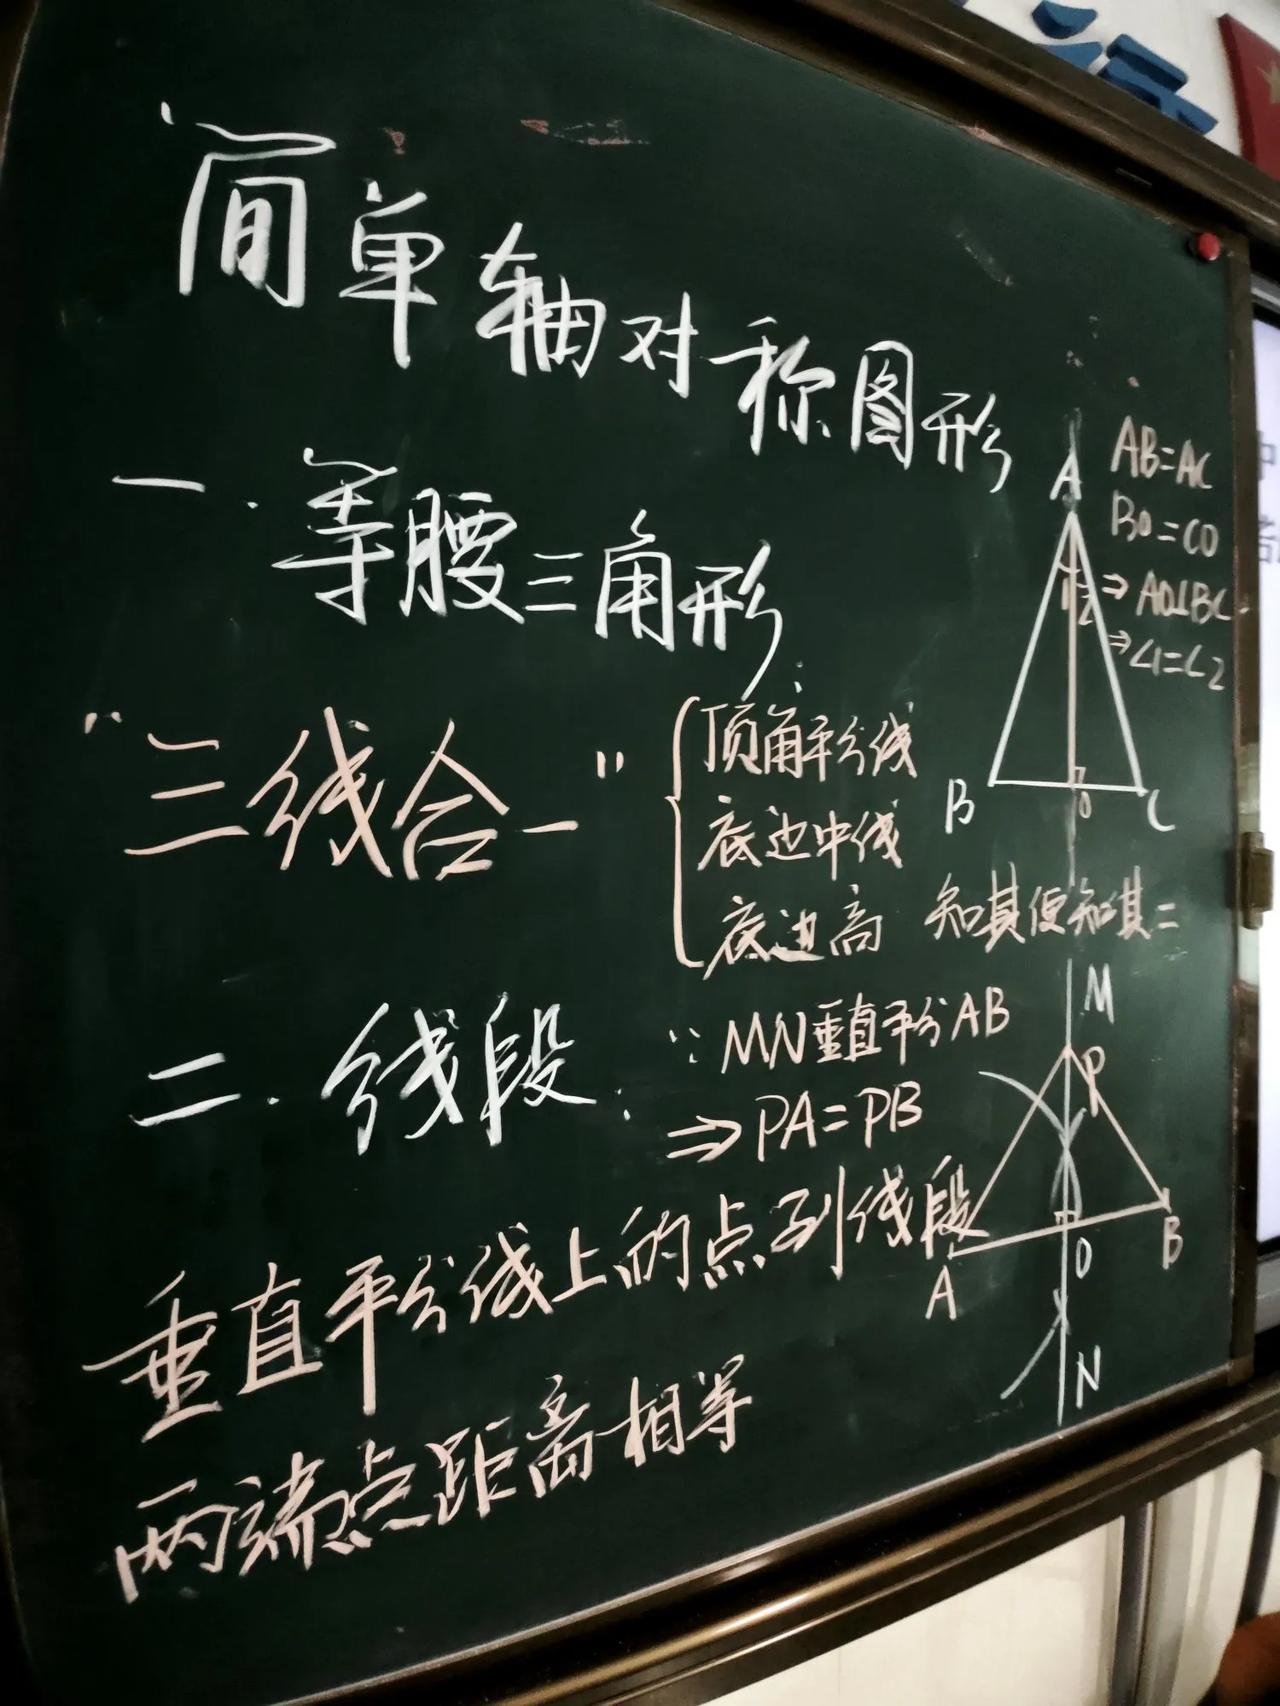 简单轴对称图形
一.等腰三角形:
"三线合一"
顶角平分线
底边中线
底边高 知其便知其二
A
AB=AC
BO=CO
⇒AO⊥BC
⇒∠1=∠2
1 2
B O C
二.线段:
∵MN垂直平分AB
⇒PA=PB
垂直平分线上的点到线段
两端点距离相等
M
P
A O B
N